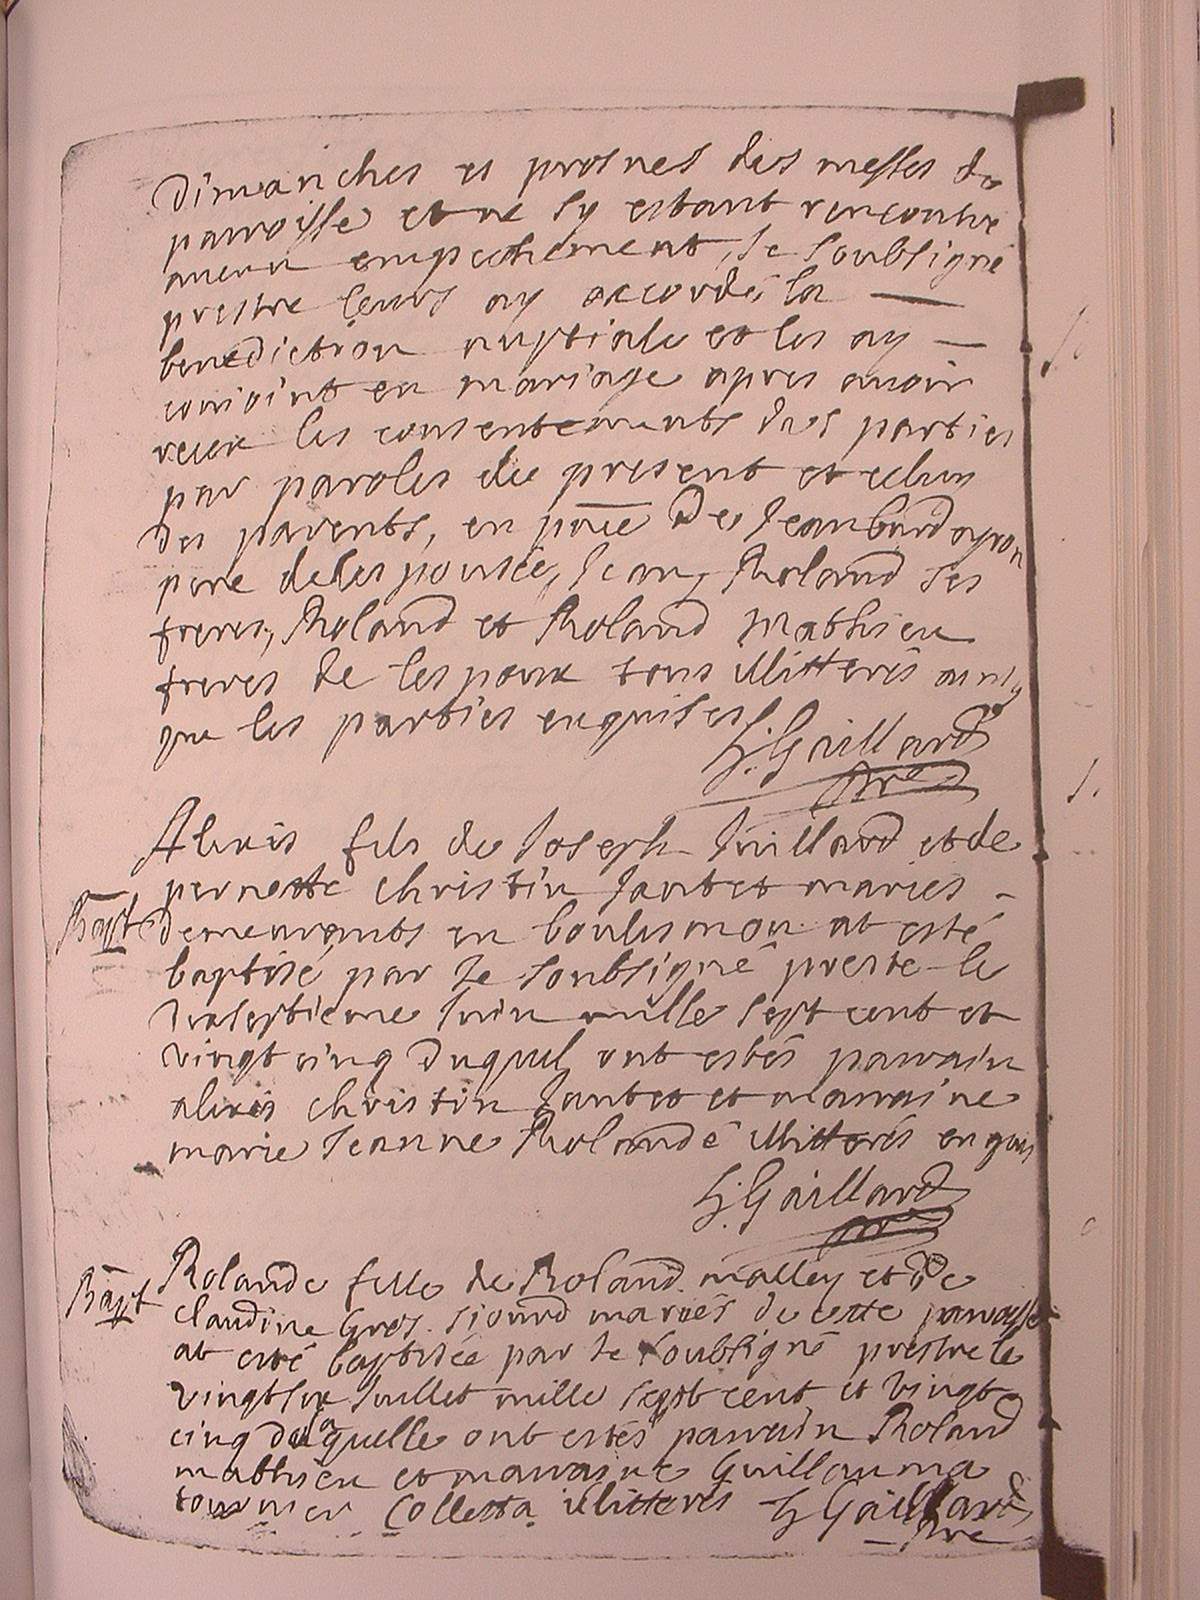 Dimanches et prosnes des messes de
parroisse et ne sy estant rencontre
aucun empechement, Je soubsigné
prestre leurs ay accordés la —
benediction nuptiale et les ay —
conioint en mariage apres avoir
receu les consentements des parties
par paroles de present et celuy
des parents, en pñce De Jean
pere de lespousée, Jean, Roland ses
freres, Roland et Roland Mathieu
freres de lespoux tous illitterés ainsy
que les parties enquises
h. Gaillard
pre
Alexis fils de Joseph Juillard et de
pernette christin Jantet maries -
Bapt
demeurants en at esté
baptisé par Je soubsigné preste le
dixseptieme Juin mille sept cent et
vingt cinq Duquel ont estés parrain
alexis christin Jantet et marraine
marie Jeanne Rolandé illitterés enquis
h. Gaillard
pre
Bapt
Rolande fille de Roland malley et de
claudine Gros mariés de cette parroisse
at esté baptisée par Je soubsigné prestre le
vingt six Juillet mille sept cent et vingt
cinq de laquelle ont estés parrain Roland
mathieu et marraine Guillauma
tournier Colletta illitterés h Gaillard
pre